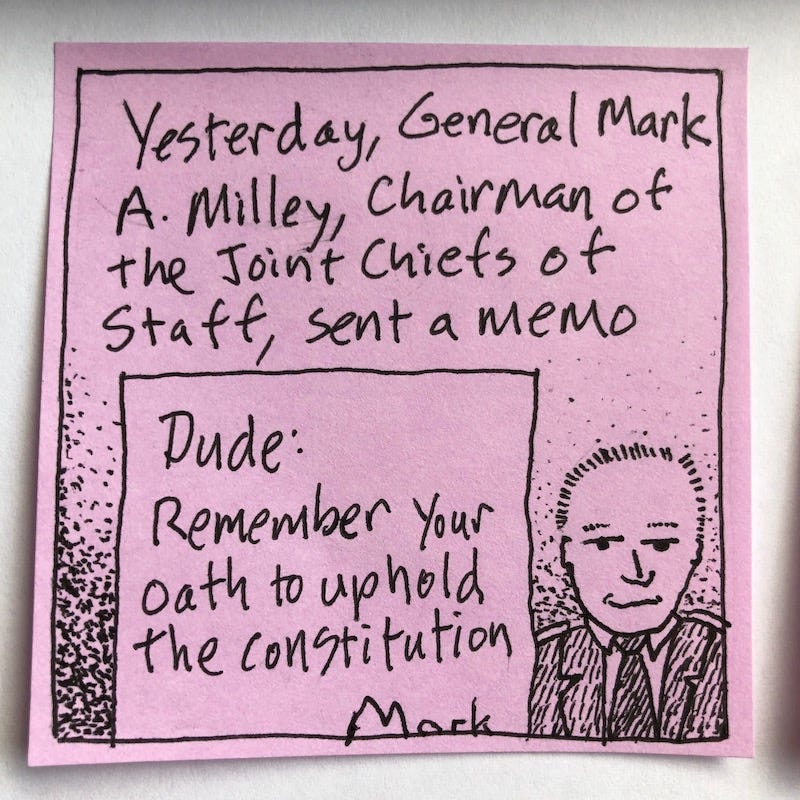 Yesterday, General Mark
A. Milley, Chairman of
the Joint Chiefs of
Staff, sent a memo
Dude:
Remember your
oath to uphold
the constitution
Mark